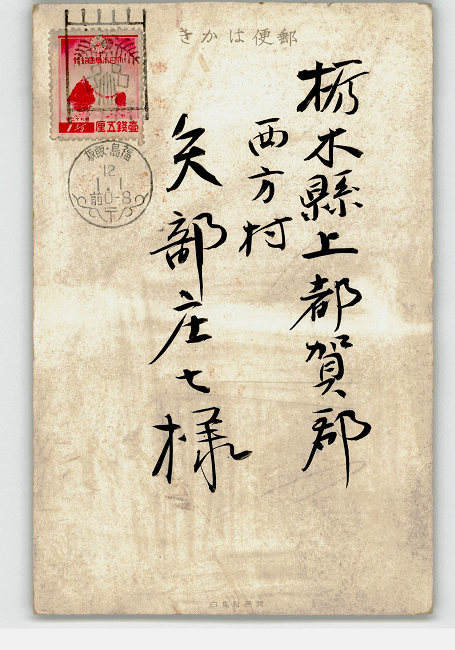 きかは便郵
栃木縣上都賀郡
西方村
矢部庄七様
1½ 壹錢五厘
福島・飯坂
12
1.1
前0-8